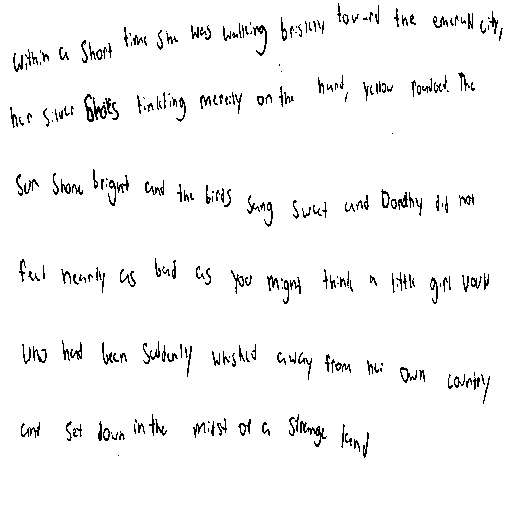 Within a short time she was walking briskly toward the emerald city,
her silver Shoes tinkling merrily on the hard, yellow roadbed. The
Sun Shone bright and the birds sang sweet and Dorothy did not
feel nearly as bad as you might think a little girl would
who had been suddenly whisked away from her own country
and set down in the midst of a strange land